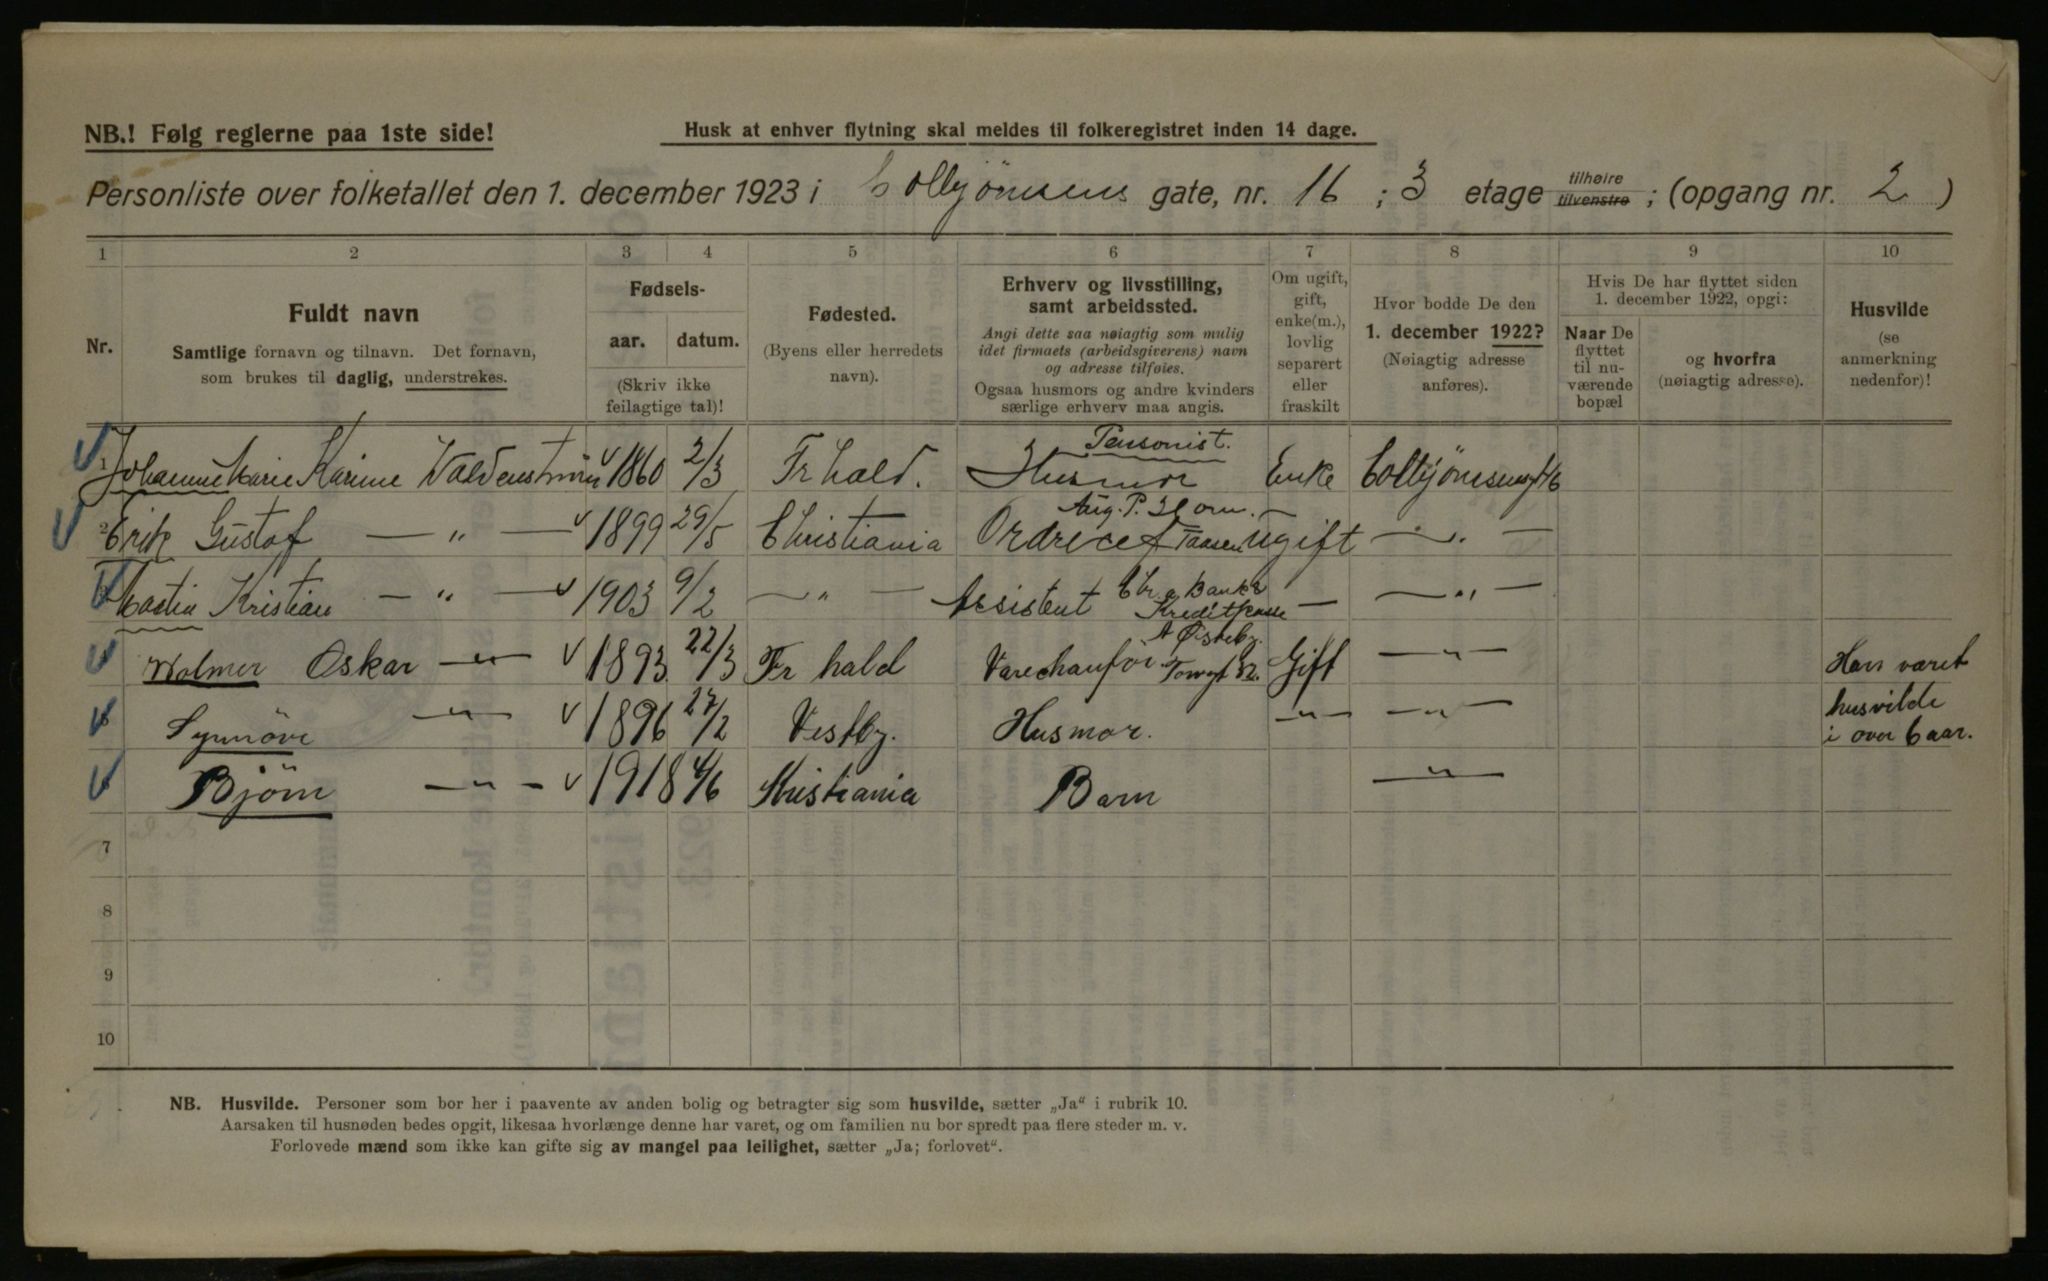 NB.! Følg reglerne paa 1ste side!
Husk at enhver flytning skal meldes til folkeregistret inden 14 dage.
Personliste over folketallet den 1. december 1923 i Colbjørnsens gate, nr. 16 ; 3 etage tilhøire tilvenstre ; (opgang nr. 2 )
1 2 3 4 5 6 7 8 9 10
Nr.
Fuldt navn
Samtlige fornavn og tilnavn. Det fornavn,
som brukes til daglig, understrekes.
Fødsels-
aar. datum.
(Skriv ikke
feilagtige tal)!
Fødested.
(Byens eller herredets
navn).
Erhverv og livsstilling,
samt arbeidssted.
Angi dette saa nøiagtig som mulig
idet firmaets (arbeidsgiverens) navn
og adresse tilføies.
Ogsaa husmors og andre kvinders
særlige erhverv maa angis.
Om ugift,
gift,
enke(m.),
lovlig
separert
eller
fraskilt
Hvor bodde De den
1. december 1922?
(Nøiagtig adresse
anføres).
Hvis De har flyttet siden
1. december 1922, opgi:
Naar De
flyttet
til nu-
værende
bopæl
og hvorfra
(nøiagtig adresse).
Husvilde
(se
anmerkning
nedenfor)!
Pensonist.
1 Johanne Marie Karine Valdenström 1860 2/3 Fr hald. Husmor Enke Colbjörnsensgt 16
Aug. P. Horn.
2 Erik Gustaf — " — 1899 29/5 Christiania Ordrecef Taasen Ugift — " —
Kristian — " — 1903 9/2 — " — Assistent Chr a Bank & Kreditkasse — — " —
Wolmer Oskar — " — 1893 22/3 Fr hald Varechauför Torvgt 32. Gift — " — Har været
Synnöve — " — 1896 27/2 Vestby. Husmor. — " — — " — husvilde
i over 6 aar.
Björn — " — 1918 4/6 Kristiania Barn — " —
7
8
9
10
NB. Husvilde. Personer som bor her i paavente av anden bolig og betragter sig som husvilde, sætter „Ja" i rubrik 10.
Aarsaken til husnøden bedes opgit, likesaa hvorlænge denne har varet, og om familien nu bor spredt paa flere steder m. v.
Forlovede mænd som ikke kan gifte sig av mangel paa leilighet, sætter „Ja; forlovet".